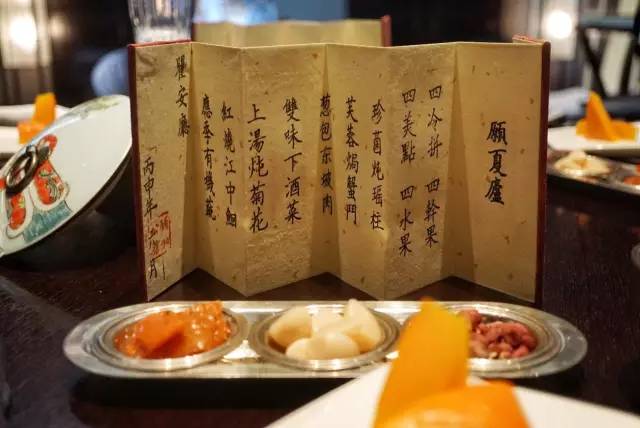 願夏廬
四冷拼 四幹果
四美點 四水果
珍菌炖瑶柱
芙蓉焗蟹鬥
葱包东坡肉
雙味下酒菜
上湯炖菊花
紅燒江中鮰
應季有機蔬
瞿安廳
丙申年